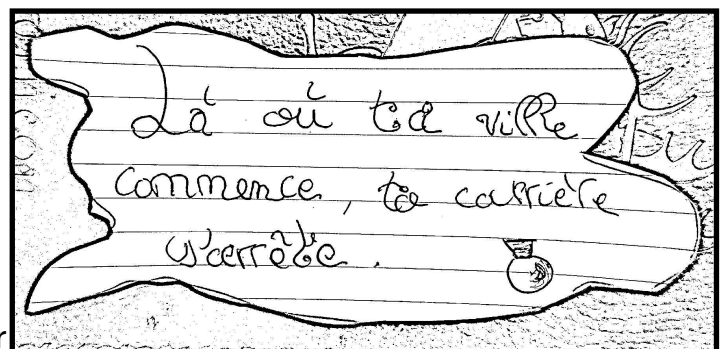 Là où ta ville
commence, ta carrière
s'arrête.